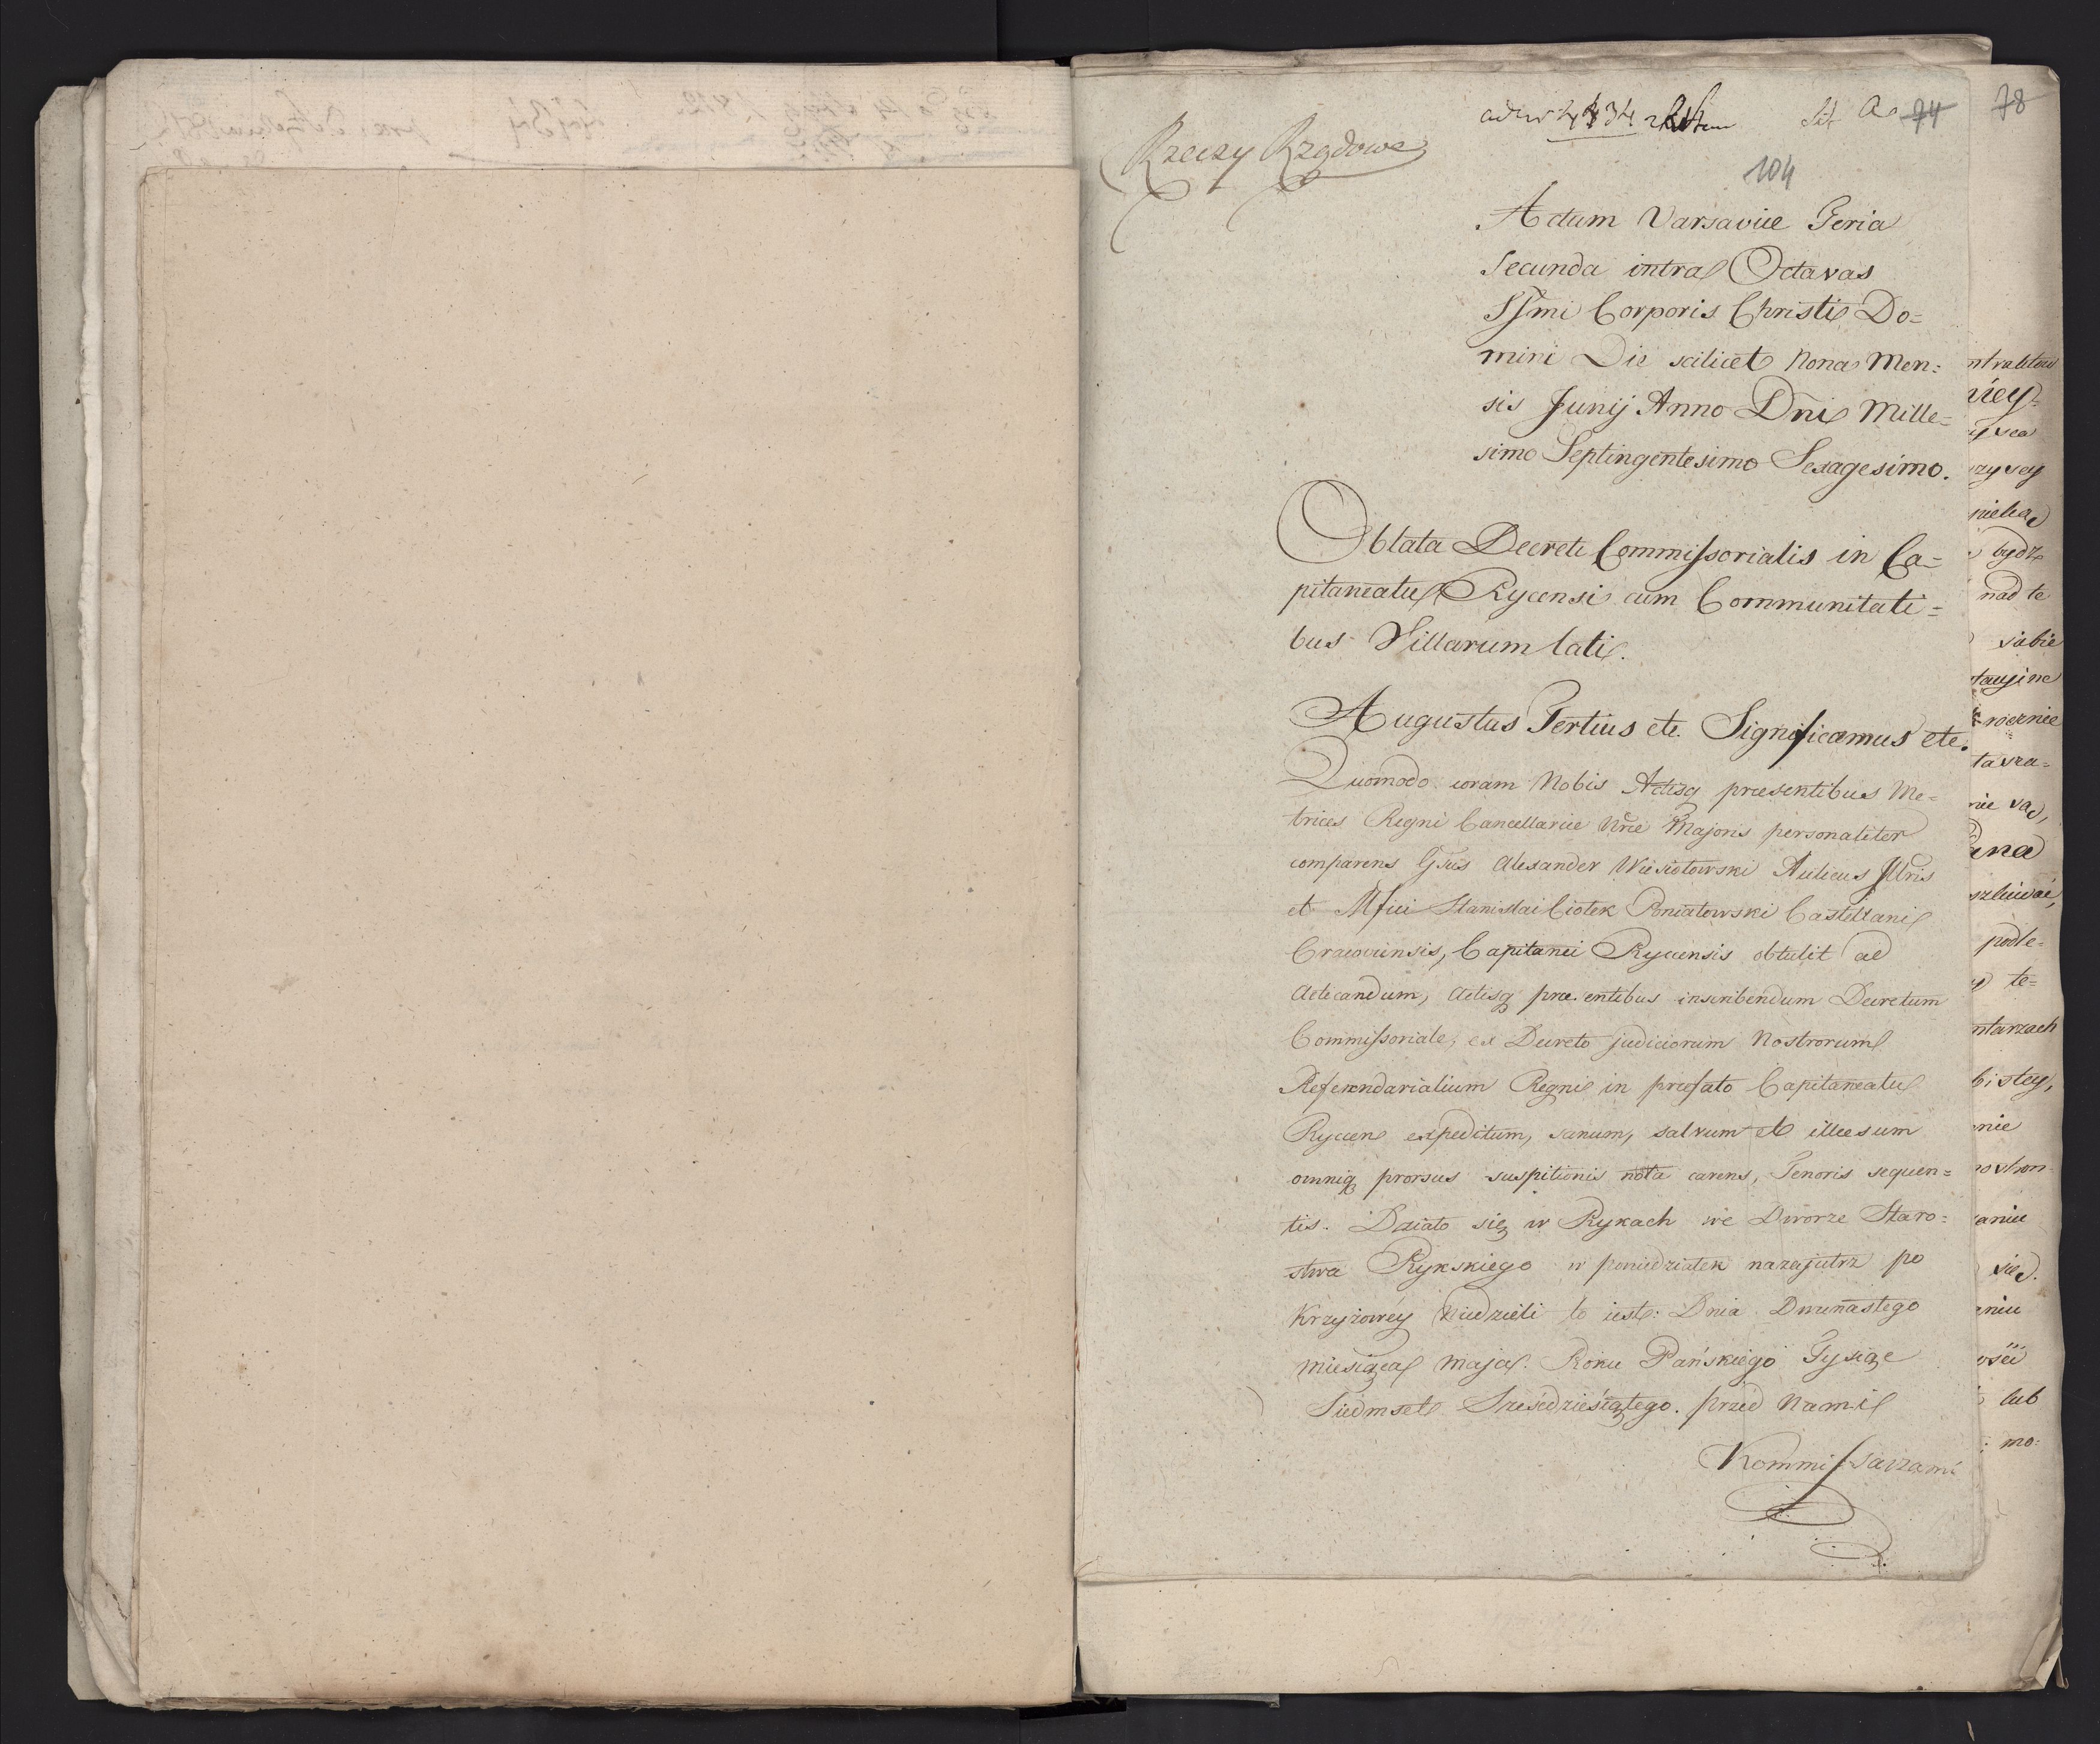 Rzeczy Rządowe
Lit A. 74
78
104
Actum Varsaviæ Feria
Secunda intra Octavas
SSmi Corporis Christi Do=
mini Die scilicet Nona Men=
sis Junij Anno Dni Mille=
simo Septingentesimo Sexagesimo.
Oblata Decreti Commissorialis in Ca=
pitaneatu Rycensi cum Communitati=
bus Villarum lati.
Augustus Tertius etc. Significamus etc.
Quomodo coram Nobis Actisq præsentibus Me=
trices Regni Cancellariæ Nræ Majoris personaliter
comparens Gsus Alexander Wiesiołowski Aulicus Illris
et Mfici Stanislai Ciołek Poniatowski Castellani
Cracoviensis, Capitanei Rycensis obtulit ad
Acticandum, Actisq præsentibus inscribendum Decretum
Commissoriale, ex Decreto judiciorum Nostrorum
Referendarialium Regni in præfato Capitaneatu
Rycen expeditum, sanum, salvum et illæsum
omniq prorsus suspitionis nota carens, Tenoris sequen=
tis. Działo się w Rykach we Dworze Staro=
stwa Rykskiego w poniedziałek nazajutrz po
Krzyżowéy Niedzieli to iest: Dnia Dwunastego
miesiąca maja. Roku Pańskiego Tysiąc
Siedmset Sześćdziesiątego. przed Nami
Kommissarzami
niey=
bydź
nad te
sobie
podle=
te=
ntarzach
nie
się.
lub
mo: